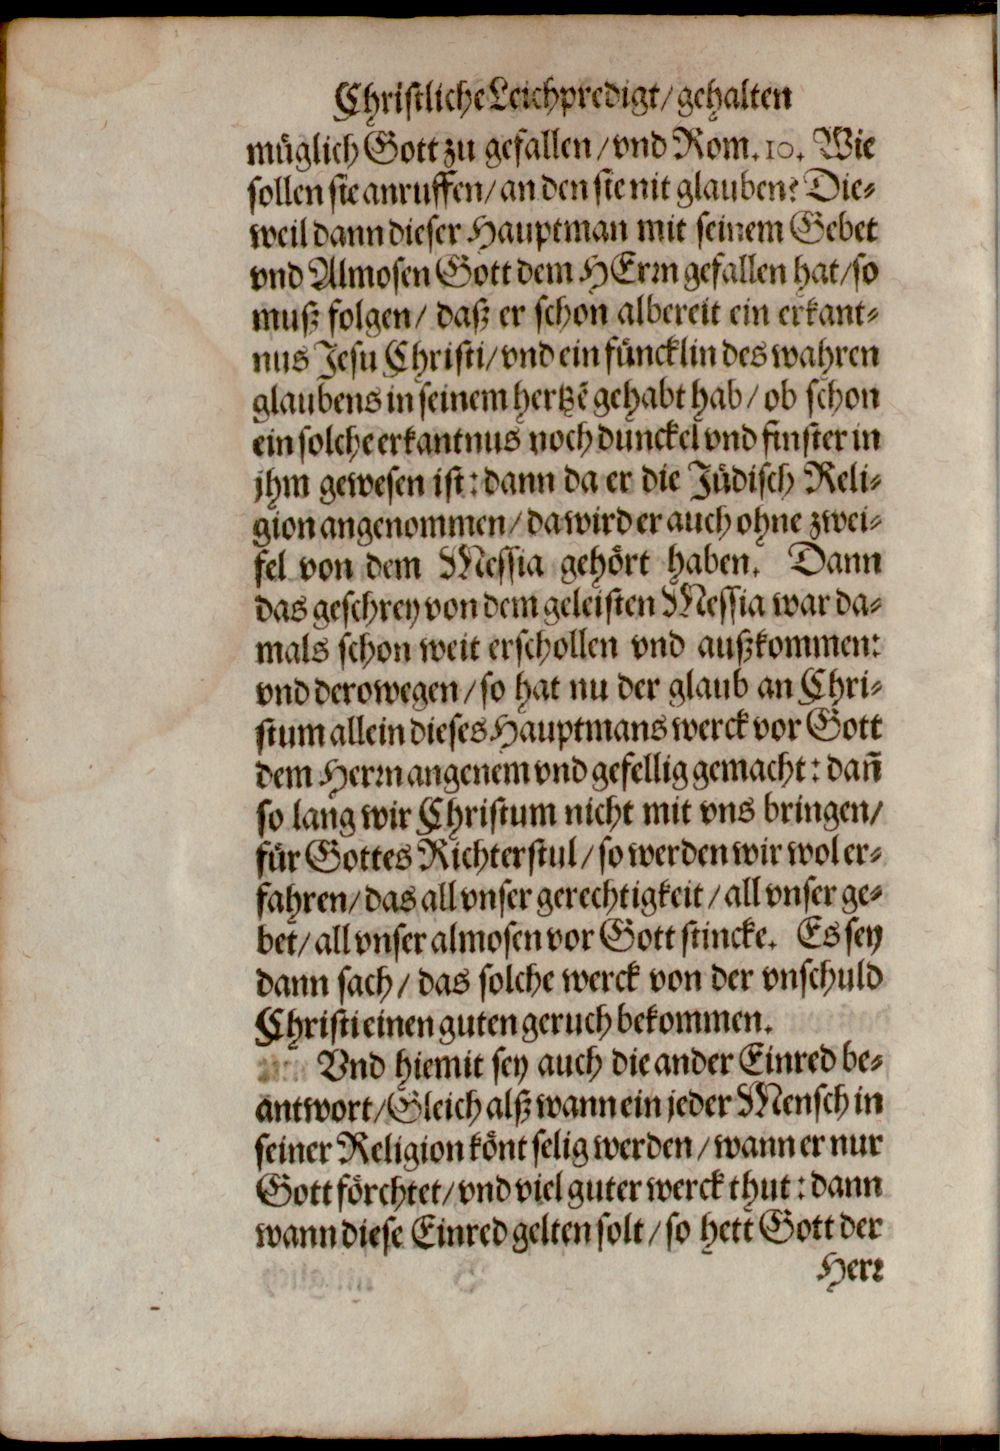 Christliche Leichpredigt/ gehalten
müglich Gott zu gefallen/ vnd Rom. 10. Wie
sollen sie anruffen/ an den sie nit glauben? Die-
weil dann dieser Hauptman mit seinem Gebet
vnd Almosen Gott dem HErrn gefallen hat/ so
muß folgen/ daß er schon albereit ein erkant-
nus Jesu Christi/ vnd ein füncklin des wahren
glaubens in seinem hertzē gehabt hab/ ob schon
ein solche erkantnus noch dunckel vnd finster in
jhm gewesen ist: dann da er die Jüdisch Reli-
gion angenommen/ da wird er auch ohne zwei-
fel von dem Messia gehört haben. Dann
das geschrey von dem geleisten Messia war da-
mals schon weit erschollen vnd außkommen:
vnd derowegen/ so hat nu der glaub an Chri-
stum allein dieses Hauptmans werck vor Gott
dem Herrn angenem vnd gefellig gemacht: dañ
so lang wir Christum nicht mit vns bringen/
für Gottes Richterstul/ so werden wir wol er-
fahren/ das all vnser gerechtigkeit/ all vnser ge-
bet/ all vnser almosen vor Gott stincke. Es sey
dann sach/ das solche werck von der vnschuld
Christi einen guten geruch bekommen.
Vnd hiemit sey auch die ander Einred be-
antwort/ Gleich alß wann ein jeder Mensch in
seiner Religion könt selig werden/ wann er nur
Gott förchtet/ vnd viel guter werck thut: dann
wann diese Einred gelten solt/ so hett Gott der
Herr